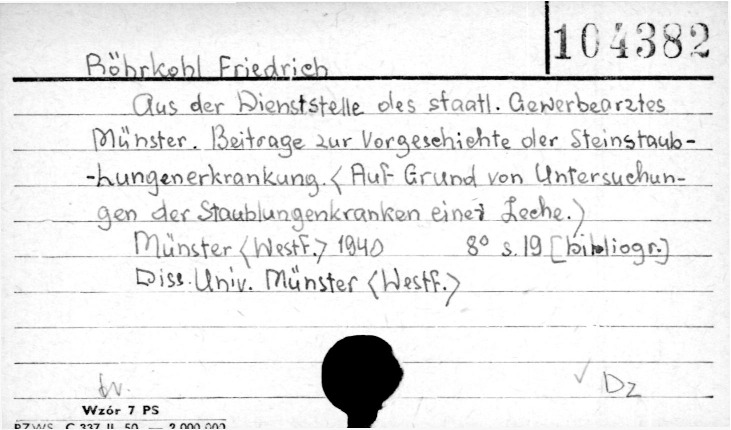 104382
Röhrkohl Friedrich
Aus der Dienststelle des staatl. Gewerbearztes
Münster. Beitrage zur Vorgeschichte der Steinstaub-
-lungenerkrankung. <Auf Grund von Untersuchun-
gen der Staublungenkranken einer Zeche.>
Münster <Westf.> 1940 8° s. 19 [bibliogr.]
Diss. Univ. Münster <Westf.>
Dz
Wzór 7 PS
PZWS C 337 II 50 — 2 000 000